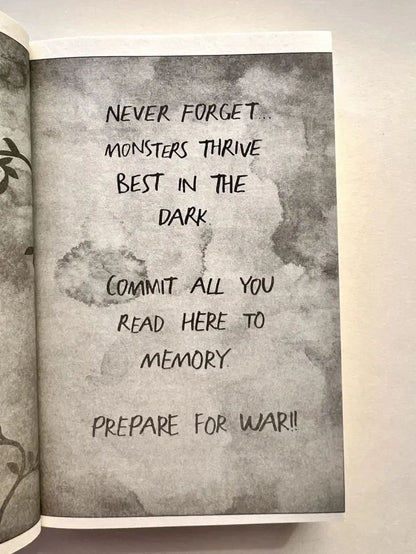 NEVER FORGET...
MONSTERS THRIVE
BEST IN THE
DARK.
COMMIT ALL YOU
READ HERE TO
MEMORY.
PREPARE FOR WAR!!